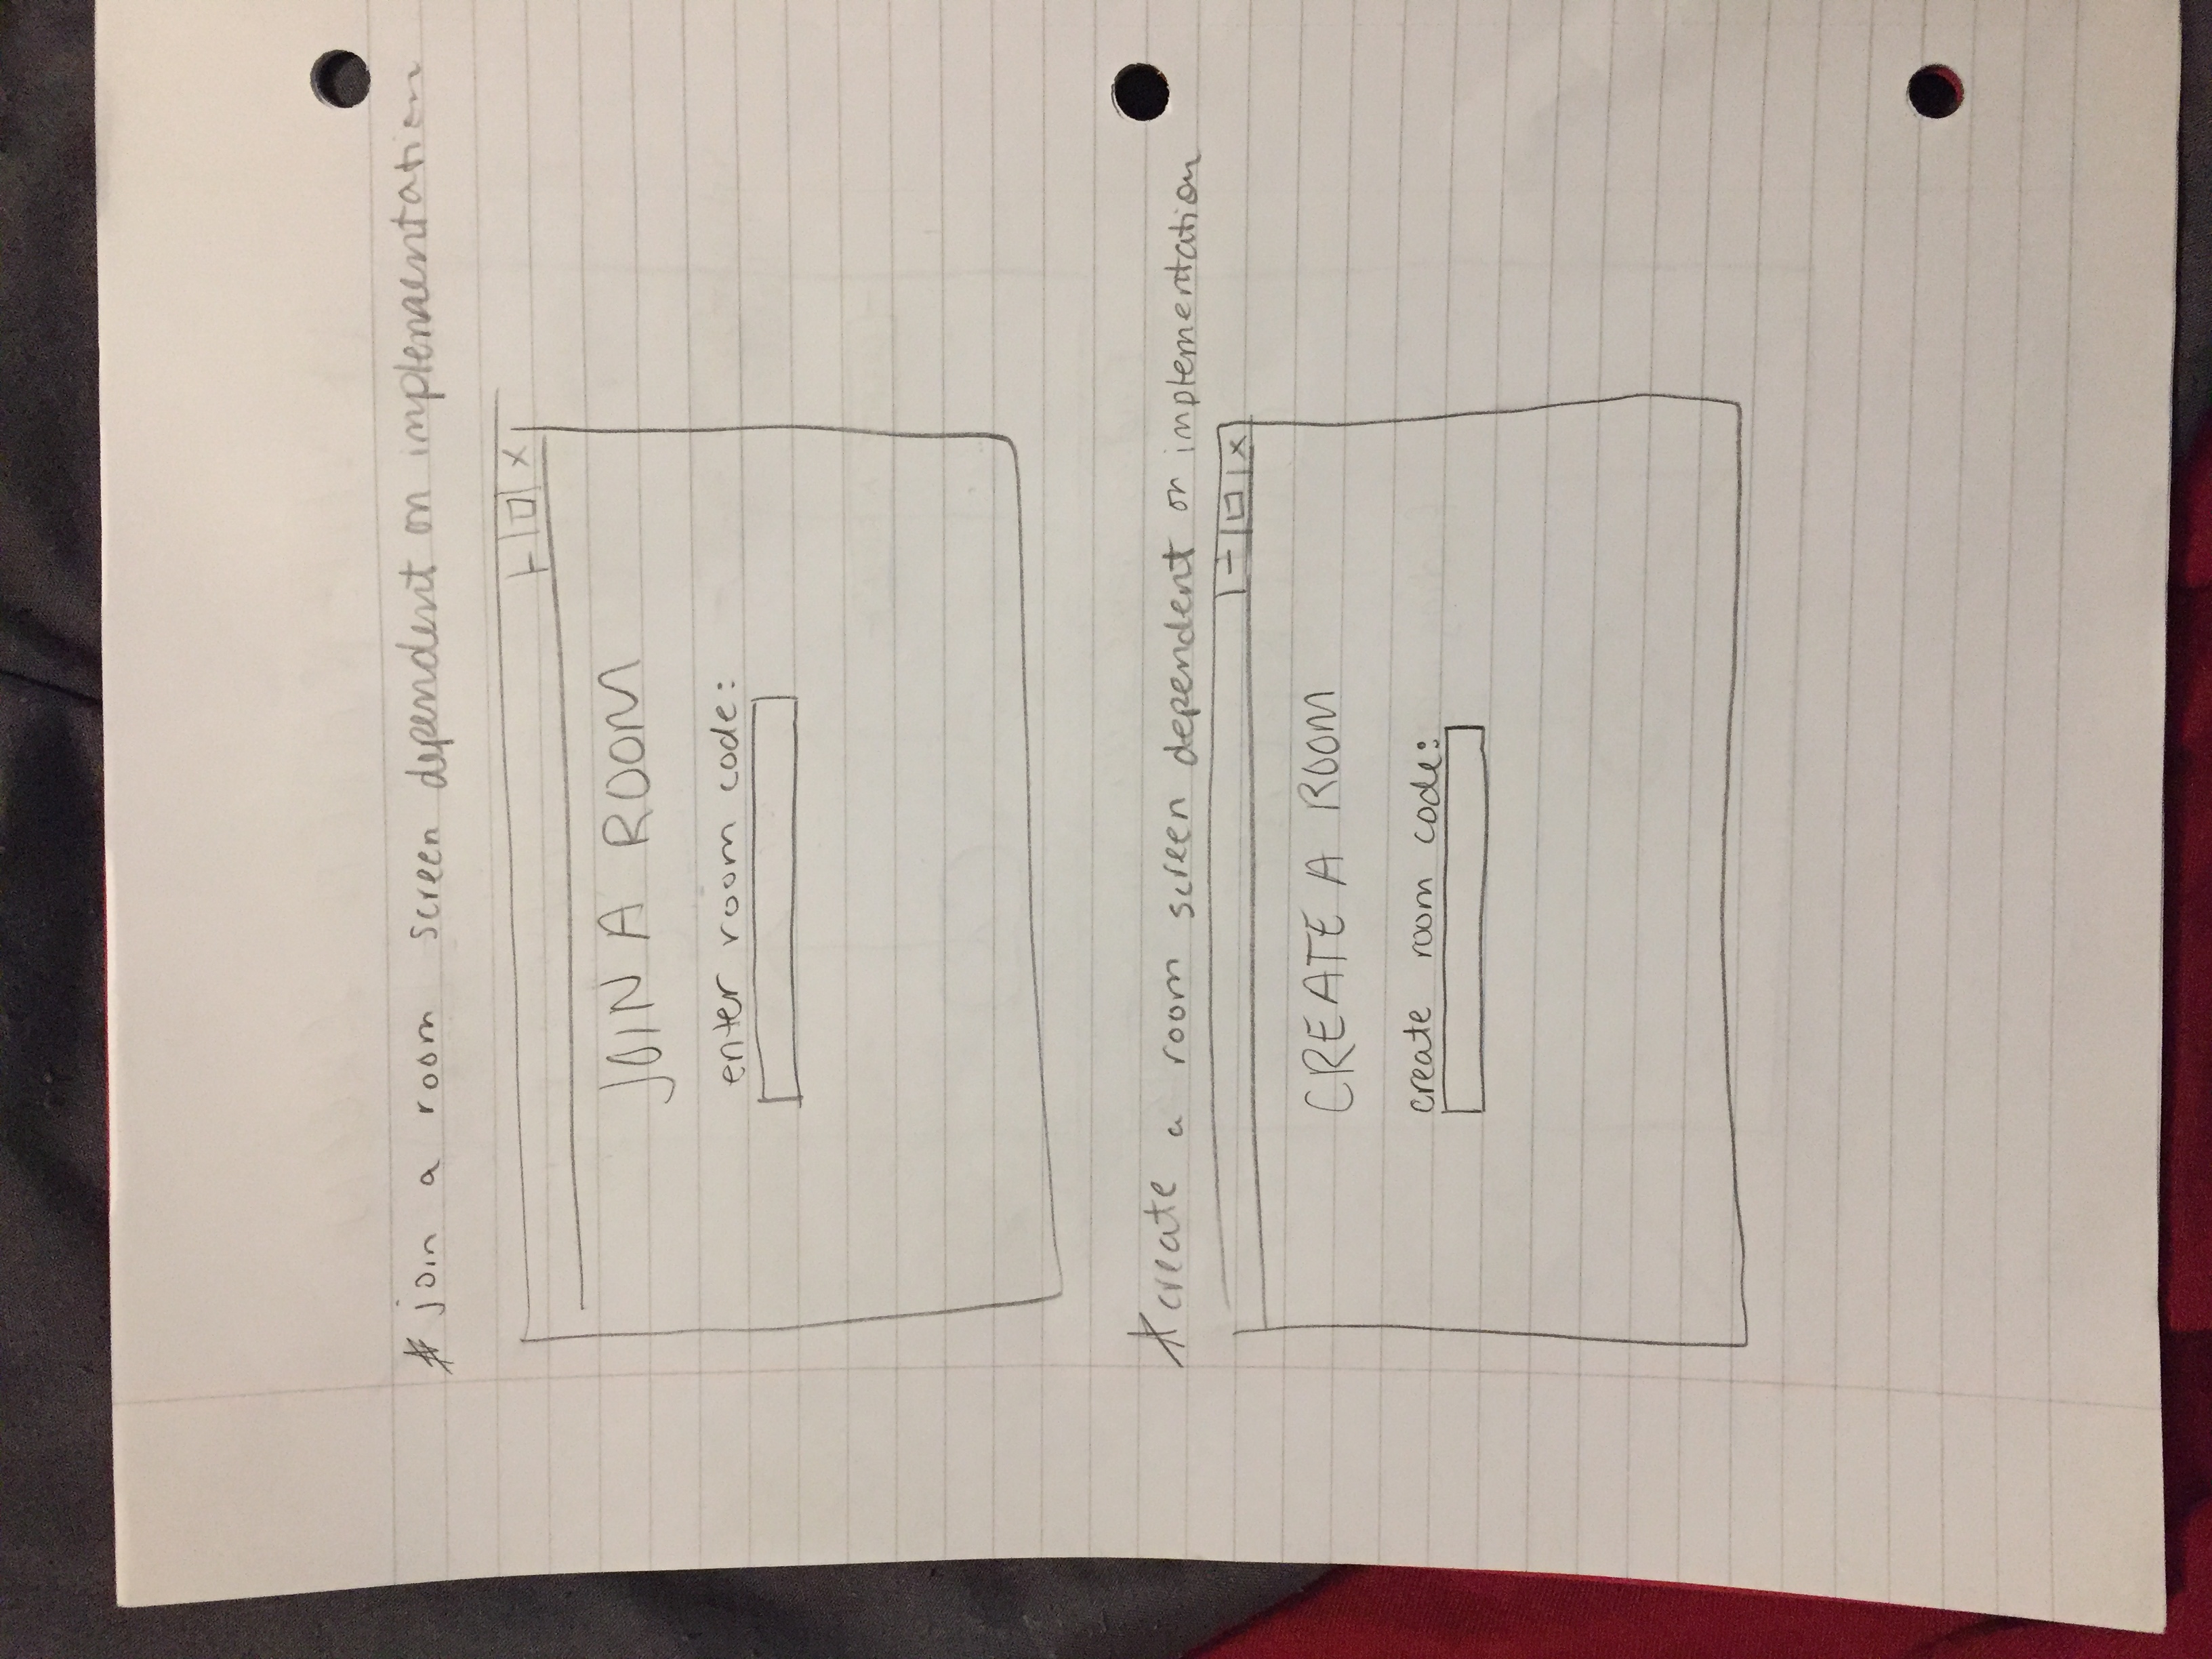 * join a room screen dependent on implementation
- □ x
JOIN A ROOM
enter room code:
* create a room screen dependent on implementation
- □ x
CREATE A ROOM
create room code: